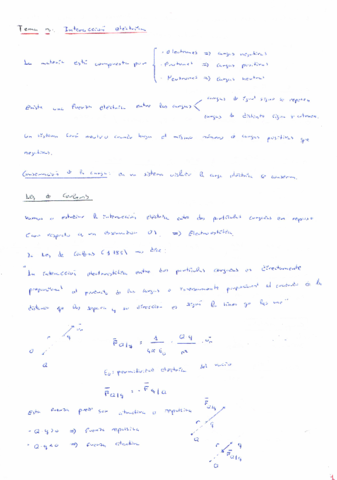 Tema 2: Interacción eléctrica
La materia está compuesta por
- Electrones ⇒ carga negativa
- Protones ⇒ carga positiva
- Neutrones ⇒ carga neutra
Existe una fuerza eléctrica entre las cargas
cargas de igual signo se repelen
cargas de distinto signo se atraen
Un sistema será neutro cuando haya el mismo número de cargas positivas que
negativas.
Conservación de la carga: en un sistema aislado la carga eléctrica se conserva.
Ley de Coulomb
Vamos a estudiar la interacción eléctrica entre dos partículas cargadas en reposo
⇒ Electrostática
La ley de Coulomb
"La interacción electrostática entre dos partículas cargadas es directamente
proporcional al producto de las cargas e inversamente proporcional al cuadrado de la
distancia que las separa y su dirección es según la línea que las une"
F Q/q = 1 / 4π ε₀ · Q q / r² · û
ε₀: permitividad eléctrica del vacío
F Q/q = - F q/Q
Esta fuerza puede ser atractiva o repulsiva
- Q·q > 0 ⇒ fuerza repulsiva
- Q·q < 0 ⇒ fuerza atractiva
1